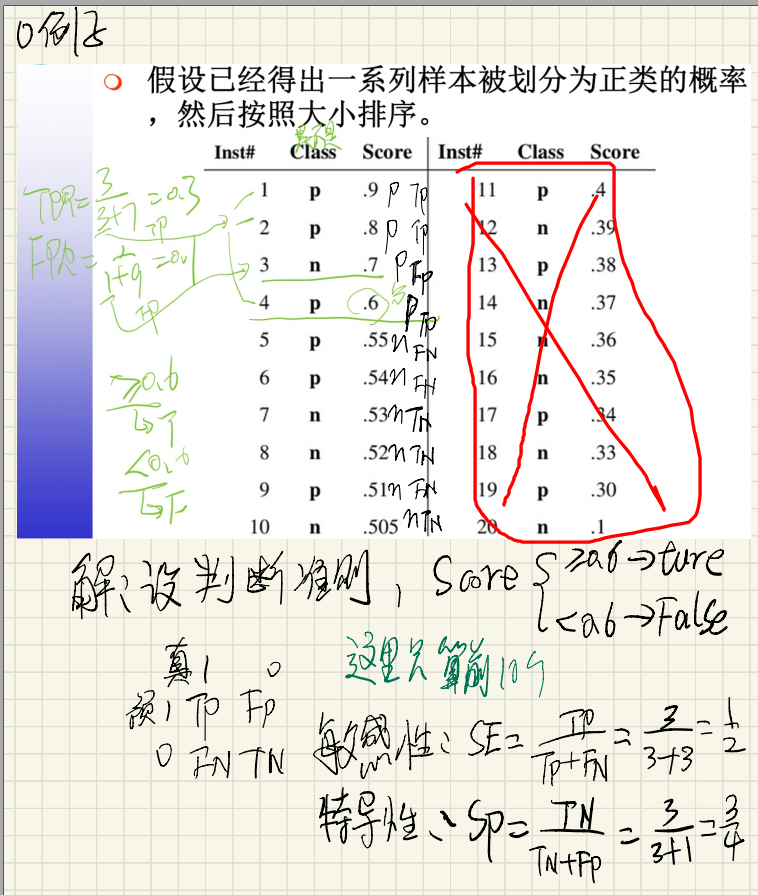 0例子
假设已经得出一系列样本被划分为正类的概率
，然后按照大小排序。
Inst# Class Score Inst# Class Score
1 p .9 P TP 11 p .4
2 p .8 P TP 12 n .39
3 n .7 P FP 13 p .38
4 p .6 P TP 14 n .37
5 p .55 n FN 15 n .36
6 p .54 n FN 16 n .35
7 n .53 n TN 17 p .34
8 n .52 n TN 18 n .33
9 p .51 n FN 19 p .30
10 n .505 n TN 20 n .1
TPR = 3/(3+7) = 0.3
TP
FPR = 1/(1+9) = 0.1
FP
≥0.6
↳T
<0.6
↳F
解：设判断准则，Score { ≥0.6→ture
<0.6→False
这里只算前10个
真1 0
预1 TP FP
0 FN TN
敏感性：SE = TP/(TP+FN) = 3/(3+3) = 1/2
特导性：SP = TN/(TN+FP) = 3/(3+1) = 3/4